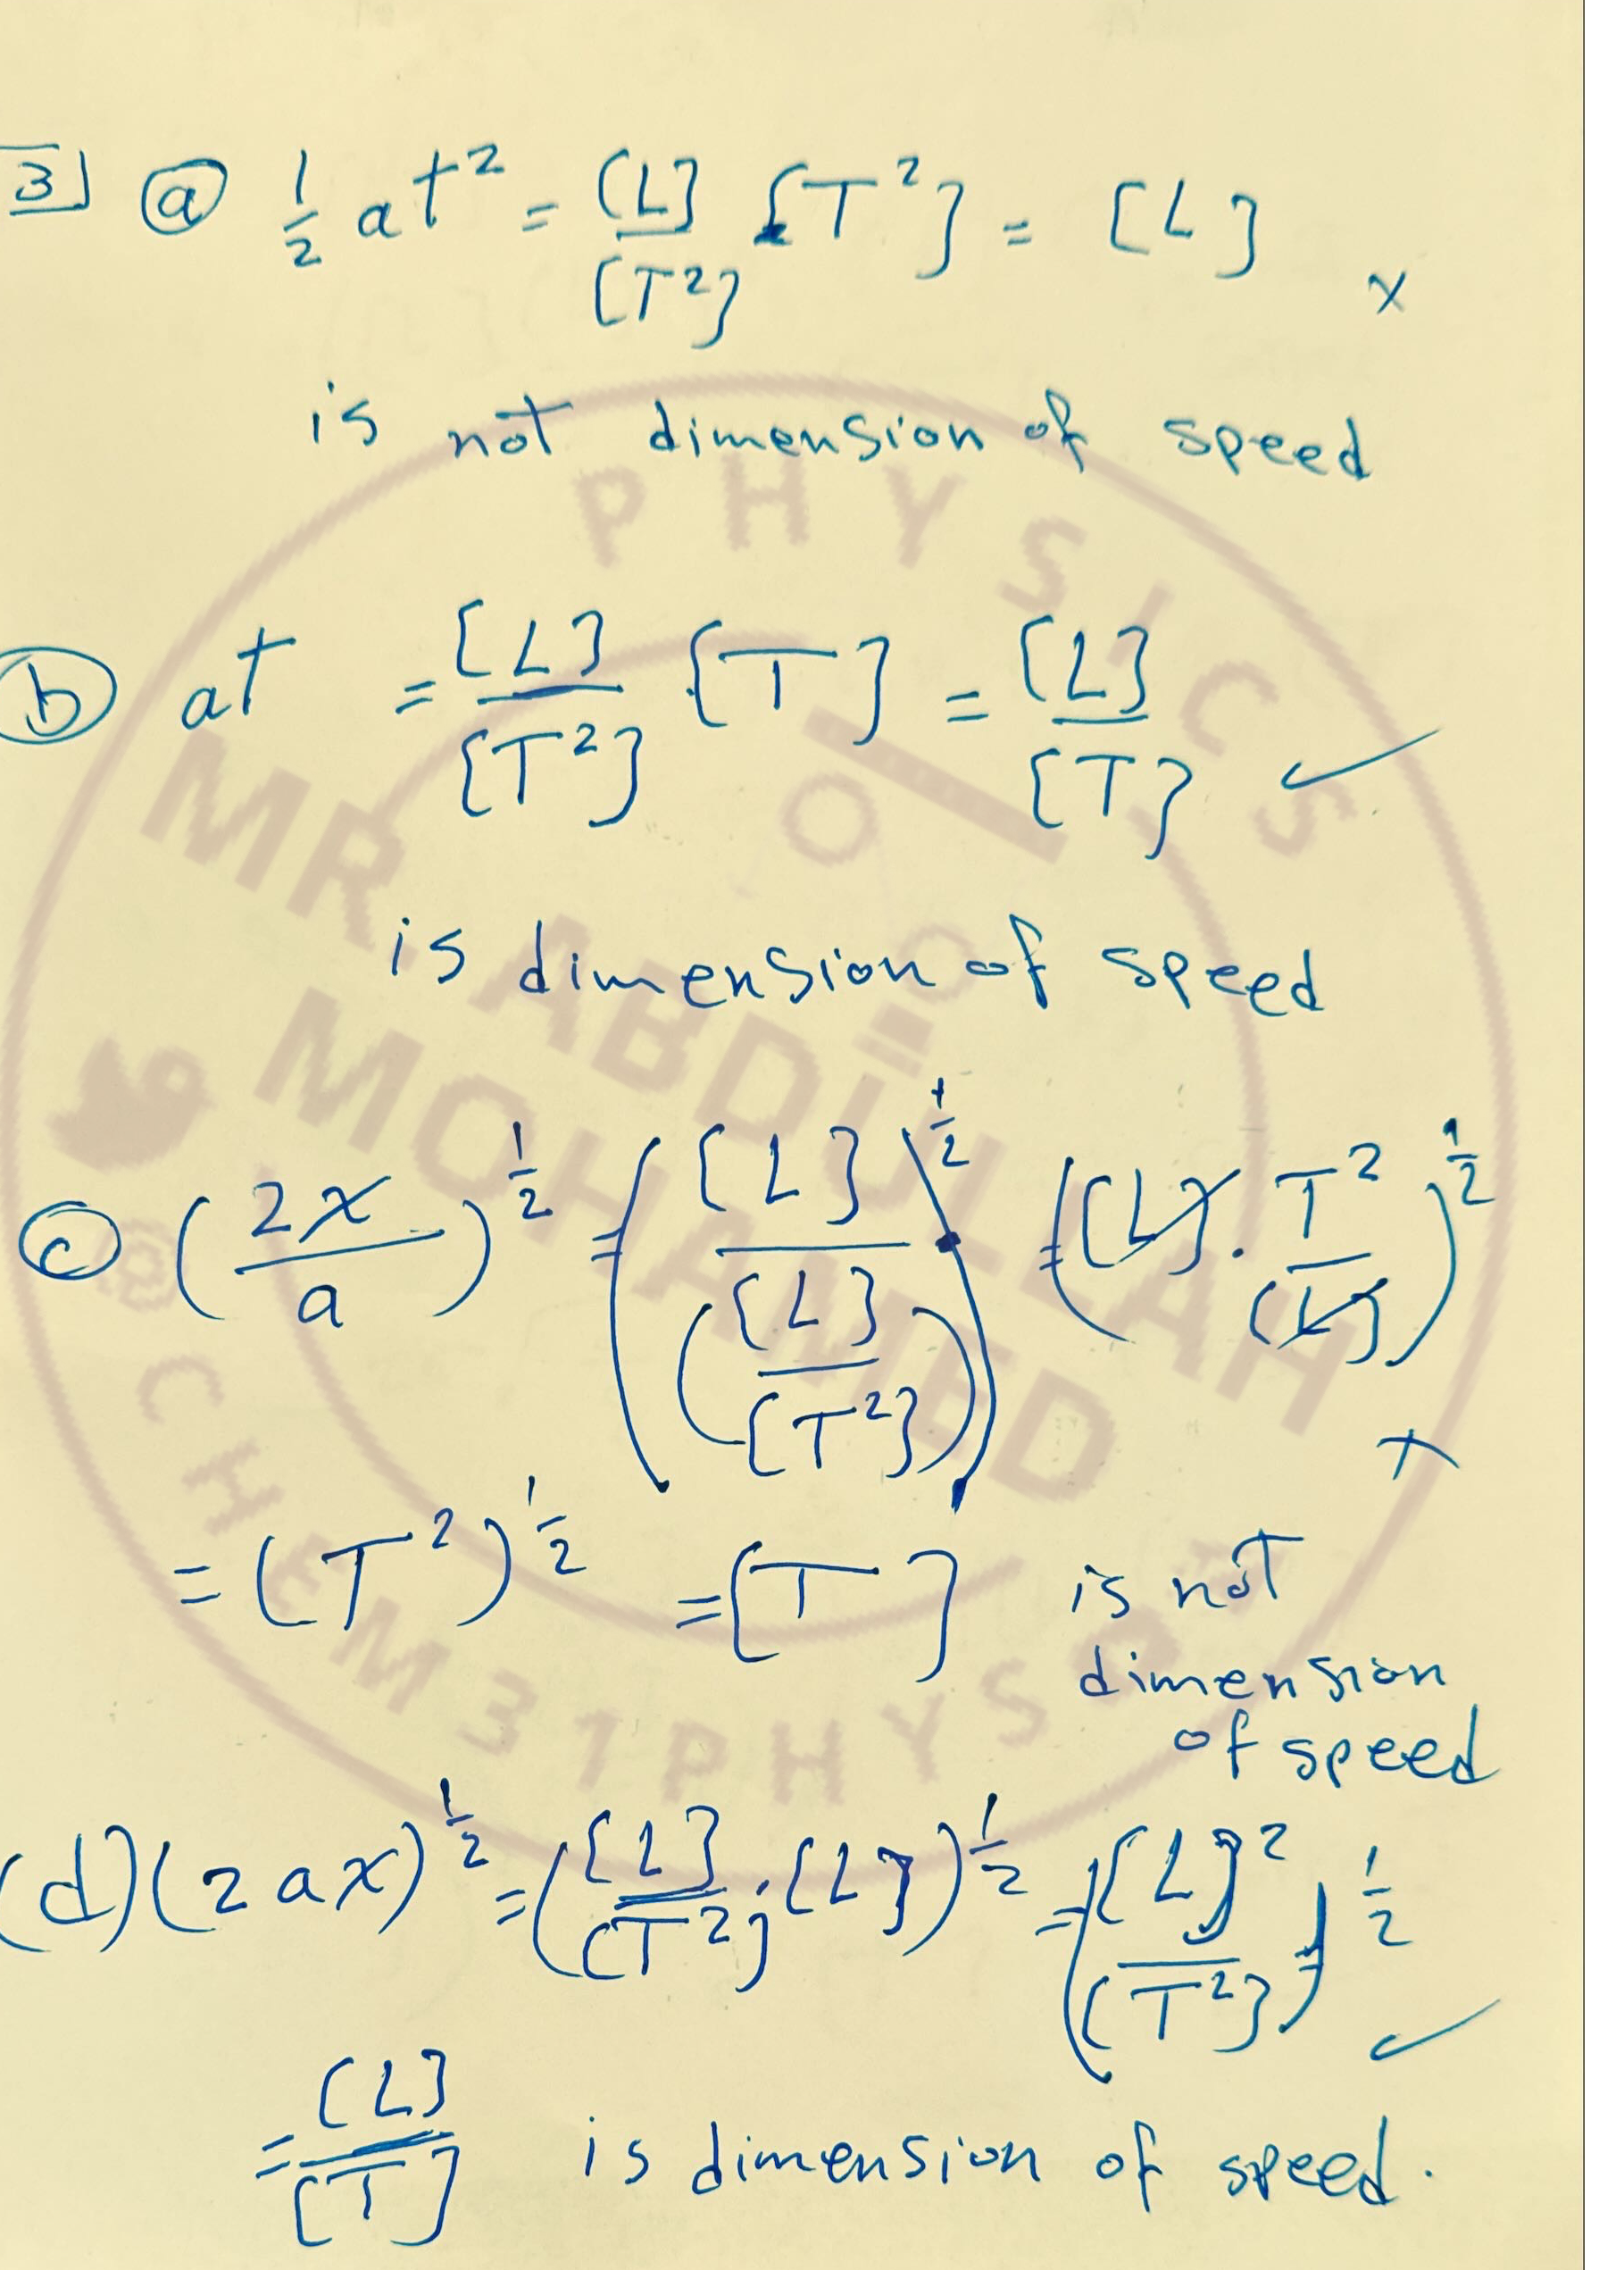 3 (a) 1/2 at² = [L]/[T²] [T²] = [L] ×
is not dimension of speed
(b) at = [L]/[T²] [T] = [L]/[T] ✓
is dimension of speed
(c) (2x/a)^1/2 = ([L]/([L]/[T²]))^1/2 = ([L] · T²/[L])^1/2 ×
= (T²)^1/2 = [T] is not
dimension
of speed
(d) (2ax)^1/2 = ([L]/[T²] · [L])^1/2 = ([L]²/[T²])^1/2 ✓
= [L]/[T] is dimension of speed.
PHYSICS
MR. ABDULLAH
MOHAMED
@CHEM31PHYS